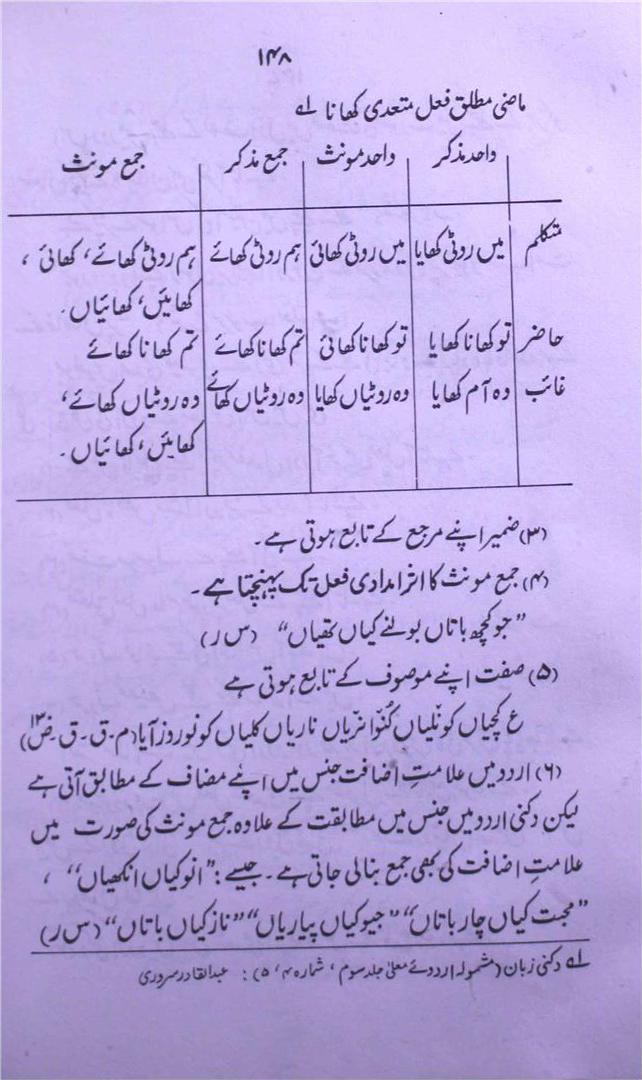 ۱۴۸
ماضی مطلق فعل متعدی کھانا لے
واحد مذکر واحد مونث جمع مذکر جمع مونث
متکلم میں روٹی کھایا میں روٹی کھائی ہم روٹی کھائے ہم روٹی کھائے، کھائی،
کھائیں، کھائیاں۔
حاضر تو کھانا کھایا تو کھانا کھائی تم کھانا کھائے تم کھانا کھائے
غائب دہ آم کھایا وہ روٹیاں کھایا دہ روٹیاں کھائے دہ روٹیاں کھائے،
کھائیں، کھائیاں۔
(۳) ضمیر اپنے مرجع کے تابع ہوتی ہے۔
(۴) جمع مونث کا اثر امدادی فعل تک پہنچتا ہے۔
”جو کچھ باتاں بولنے کیاں تھیاں“ (س ر)
(۵) صفت اپنے موصوف کے تابع ہوتی ہے
ع کچیاں کونلیاں کنوانریاں ناریاں کلیاں کو نوروز آیا (م۔ق۔ق۔ض ۱۳)
(۶) اردو میں علامتِ اضافت جنس میں اپنے مضاف کے مطابق آتی ہے
لیکن دکنی اردو میں جنس میں مطابقت کے علاوہ جمع مونث کی صورت میں
علامتِ اضافت کی بھی جمع بنالی جاتی ہے۔ جیسے: ”انو کیاں انکھیاں“،
”محبت کیاں چار باتاں“ ”جیو کیاں پیاریاں“ ”ناز کیاں باتاں“ (س ر)
لے دکنی زبان (مشمولہ اردوئے معلیٰ جلد سوم، شمارہ ۴، ۵): عبدالقادر سروری